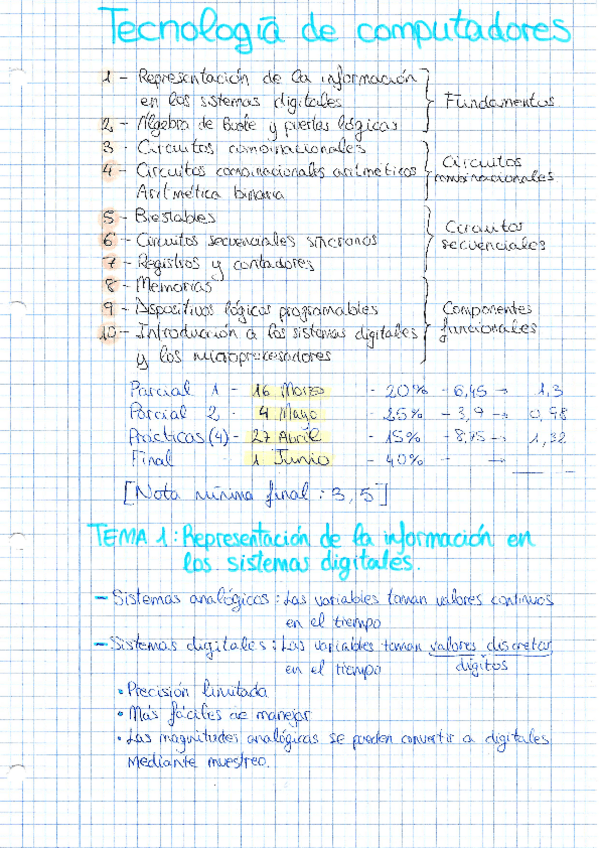 Tecnología de computadores
1 - Representación de la información
en los sistemas digitales
2 - Álgebra de Boole y puertas lógicas
Fundamentos
3 - Circuitos combinacionales
4 - Circuitos combinacionales aritméticos
Aritmética binaria
Circuitos
combinacionales
5 - Biestables
6 - Circuitos secuenciales síncronos
7 - Registros y contadores
Circuitos
secuenciales
8 - Memorias
9 - Dispositivos lógicos programables
10 - Introducción a los sistemas digitales
y los microprocesadores
Componentes
funcionales
Parcial 1 - 16 Marzo - 20% - 6,45 → 1,3
Parcial 2 - 4 Mayo - 25% - 3,9 → 0,98
Prácticas (4) - 27 Abril - 15% - 8,75 → 1,32
Final 1 Junio - 40% - →
[Nota mínima final: 3,5]
TEMA 1: Representación de la información en
los sistemas digitales.
- Sistemas analógicos: Las variables toman valores continuos
en el tiempo
- Sistemas digitales: Las variables toman valores discretos
en el tiempo dígitos
• Precisión limitada
• Más fáciles de manejar
• Las magnitudes analógicas se pueden convertir a digitales
mediante muestreo.